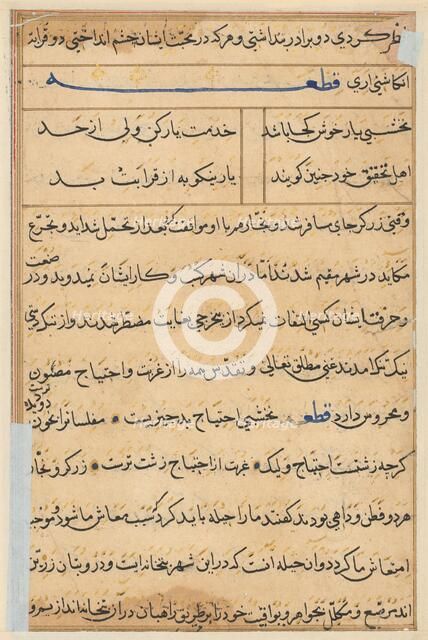 نظر کردی دو برادر پنداشتی و هر که در محبت ایشان چشم انداختی دو قرابة
انکاشتی اری قطعه
نخشبی یار خوش کجا باشد خدمت یار کن ولی از حد
اهل تحقیق خود چنین کویند یار نیکو به از قرابت بد
وقتی زرکر جای مسافر شد و نجار هم با او موافقت کرد بعد از تحمل شداید و تجرع
مکاید در شهر مقیم شدند اما در ان شهر کسب و کار ایشان نمیدوید و در صنعت
و حرفت ایشان کسی التفات نمیکرد از بیخرجی بغایت مضطر شدند و از تنکدستی
بتنک امدند غنی مطلق تعالی و تقدس همه را از غربت و احتیاج مصئون
و محروس دارد قطعه نخشبی احتیاج بد چیزیست مفلسانرا بخون
کرچه زشتست احتیاج ولیک غربت از احتیاج زشت ترست زرکر و نجار
هر دو فطن و داهی بودند کفتند ما را حیله باید کرد که سبب معاش ما شود و موجب
انتعاش ما کردد و ان حیله انست که در این شهر بتخانه ایست و درو بتان زرین
اند مرصع و مکلل بجواهر و یواقیت خود را بر طریق راهبان در ان بتخانه اندازیم و